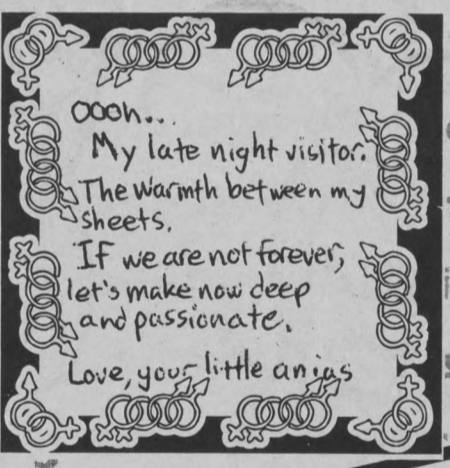 Oooh...
My late night visitor.
The warmth between my
sheets.
If we are not forever,
let's make now deep
and passionate.
Love, your little anias